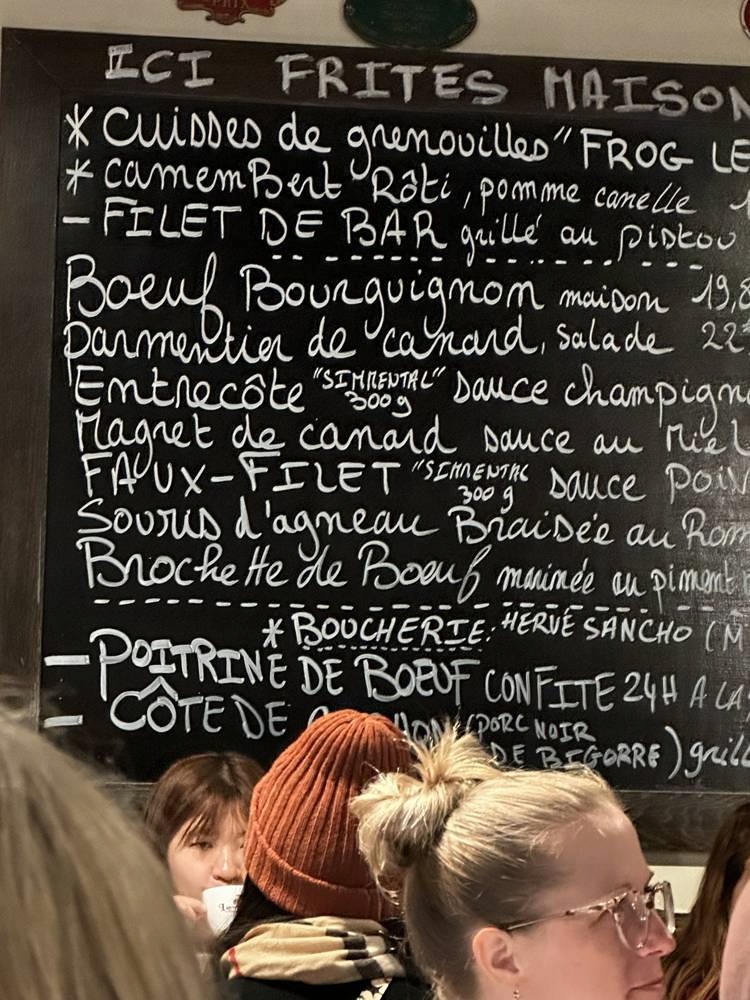 PRIX
ICI FRITES MAISON
* Cuisses de grenouilles " FROG LE
* camemBert Rôti, pomme canelle
- FILET DE BAR grillé au pistou
Boeuf Bourguignon maison 19,8
Parmentier de canard, salade 22
Entrecôte "SIMMENTAL" 300g sauce champign
Magret de canard sauce au Miel
FAUX-FILET "SIMMENTAL 300g sauce poiv
Souris d'agneau Braisée au Rom
Brochette de Boeuf marinée au piment
* BOUCHERIE: HERVÉ SANCHO (M
- POITRINE DE BOEUF CONFITE 24H A LA
- CÔTE DE (PORC NOIR DE BIGORRE) grill